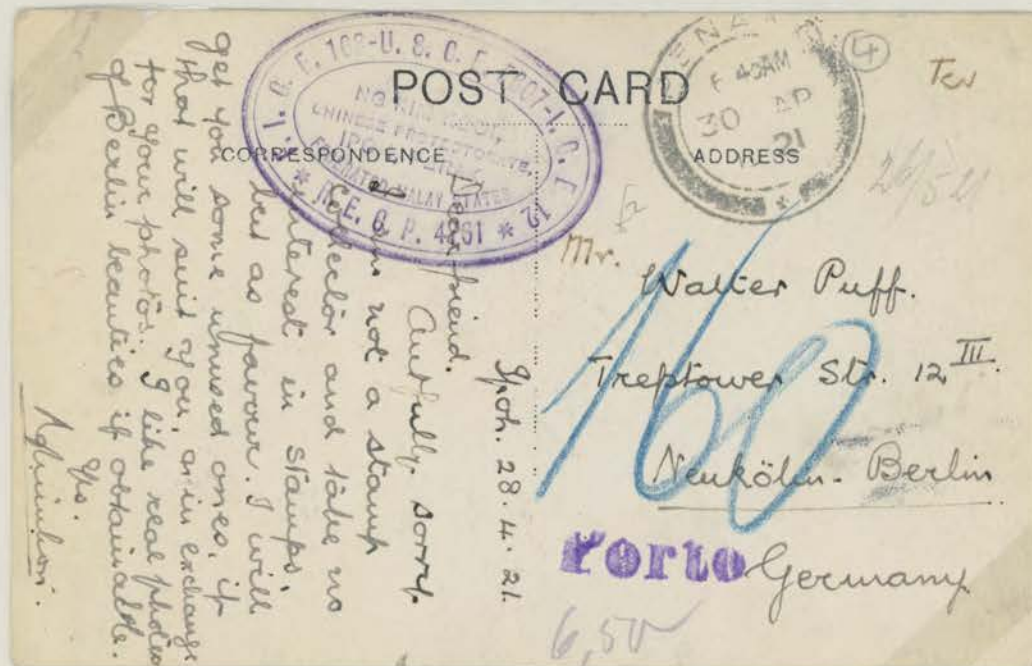 POST CARD
CORRESPONDENCE
ADDRESS
I. G. E. 162-U. S. C. E.
CHINESE PROTECTORATE,
MALAY STATES
E. G. P. 4261
40AM
30 AP
21
4
Ipoh. 28. 4. 21.
Dear friend.
Awfully sorry
I am not a stamp
collector and take no
interest in stamps,
but as favour. I will
get you some unused ones, if
that will suit you, as in exchange
for your photos. I like real photos
of Berlin beauties if obtainable.
Yrs.
Mr. Walter Puff.
Treptower Str. 12 III.
Neukölln - Berlin
Germany
160
Porto
6,50